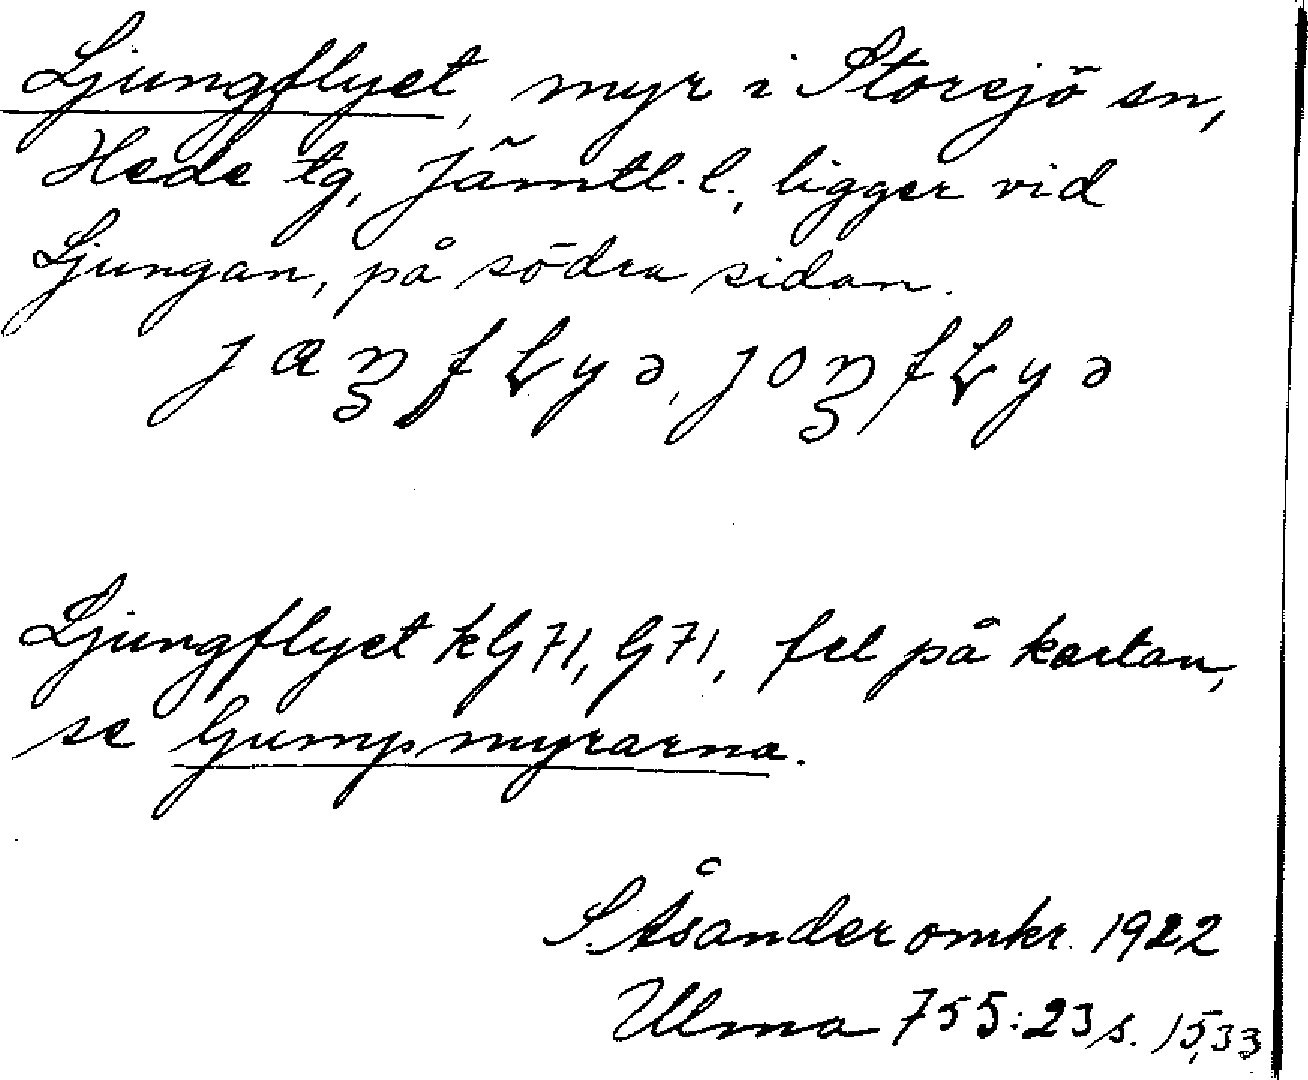 Ljungflyet, myr i Storsjö sn,
Hede tg, Jämtl. l., ligger vid
Ljungan, på södra sidan.
Ljungflyet kG71, G71, fel på kartan,
se Gumpmyrarna.
S. Åsander omkr. 1922
Ulma 755:23 s. 15,33